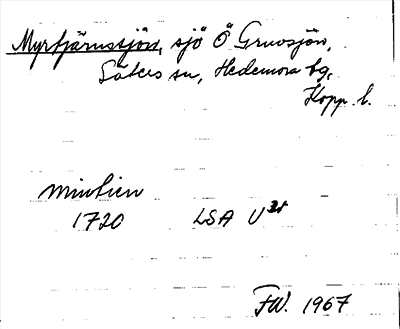 Myrtjärnssjön, sjö Ö Gruvsjön,
Säters sn, Hedemora bg,
Kopp. l.
1720 LSA U
FW. 1967